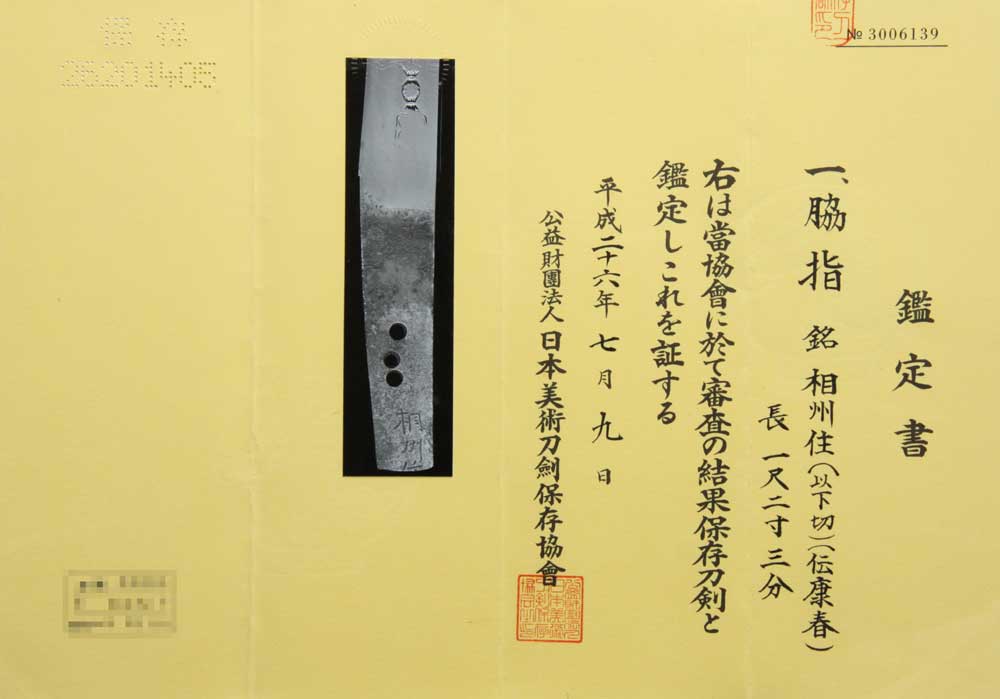 № 3006139
鑑定書
一、脇指 銘 相州住(以下切)(伝康春)
長 一尺二寸三分
右は當協會に於て審査の結果保存刀剣と
鑑定しこれを証する
平成二十六年七月九日
公益財團法人 日本美術刀劍保存協會
保存
26201405
相州住